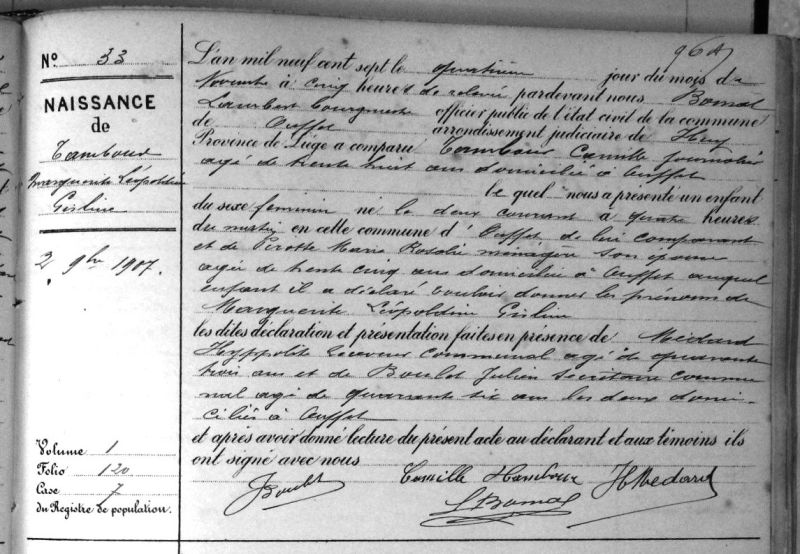 96 A
N° 33
NAISSANCE
de
Tambour
Marguerite Léopoldine
Gisline
2 9bre 1907.
Volume 1
Folio 120
Case 7
du Registre de population.
L'an mil neuf cent sept le quatrième jour du mois de
Novembre à cinq heures de relevée pardevant nous Bomal
Lambert bourgmestre officier public de l'état civil de la commune
de Ouffet arrondissement judiciaire de Huy
Province de Liége a comparu Tambour Camille journalier
agé de trente huit ans domicilié à Ouffet
le quel nous a présenté un enfant
du sexe féminin né le deux courant à quatre heures
du matin en cette commune d'Ouffet de lui comparant
et de Pirotte Marie Rosalie ménagère son épouse
agée de trente cinq ans domiciliée à Ouffet auquel
enfant il a déclaré vouloir donner les prénoms de
Marguerite Léopoldine Gisline
les dites déclaration et présentation faites en présence de Médard
Hyppolite receveur communal agé de quarante
trois ans et de Boulet Julien secrétaire commu
nal agé de quarante six ans les deux domi
ciliés à Ouffet
et après avoir donné lecture du présent acte au déclarant et aux témoins ils
ont signé avec nous
JBoulet Camille Tambour HMédard
LBomal